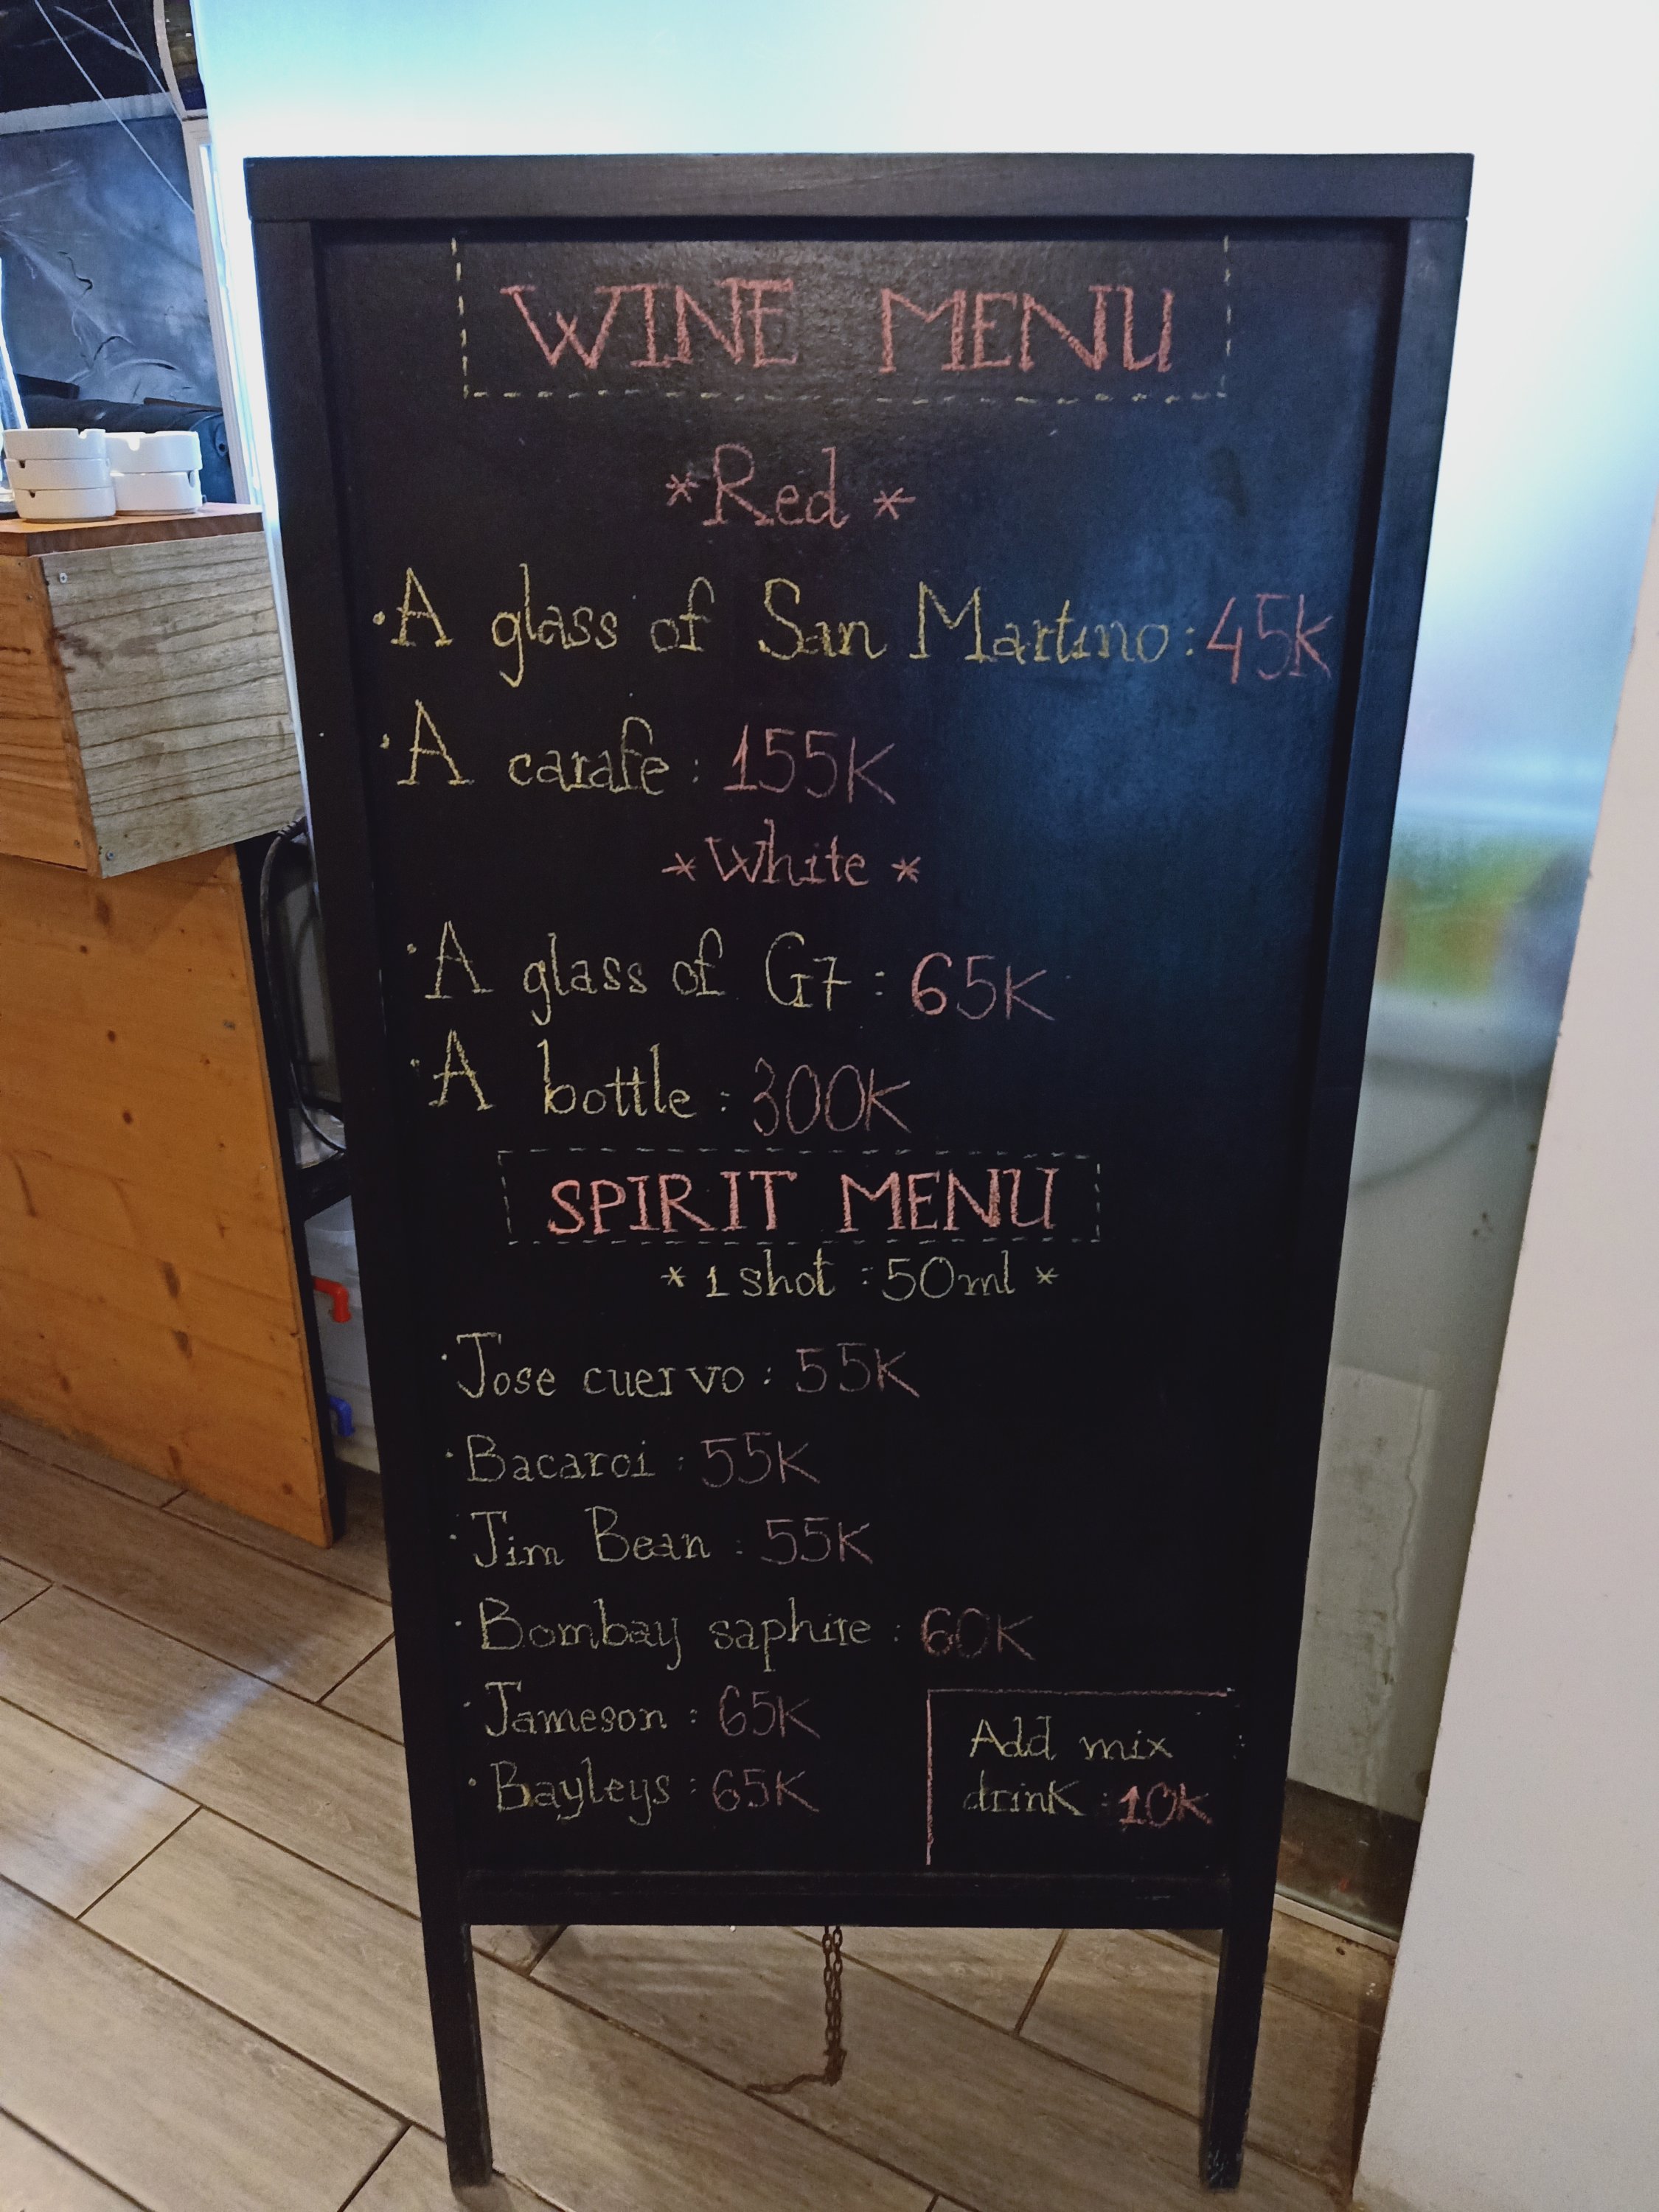 WINE MENU
*Red*
·A glass of San Martino: 45K
·A carafe: 155K
*White*
·A glass of G7: 65K
·A bottle: 300K
SPIRIT MENU
*1 shot: 50ml*
·Jose cuervo: 55K
·Bacaroi: 55K
·Jim Bean: 55K
·Bombay saphire: 60K
·Jameson: 65K
·Bayleys: 65K
Add mix
drink: 10K